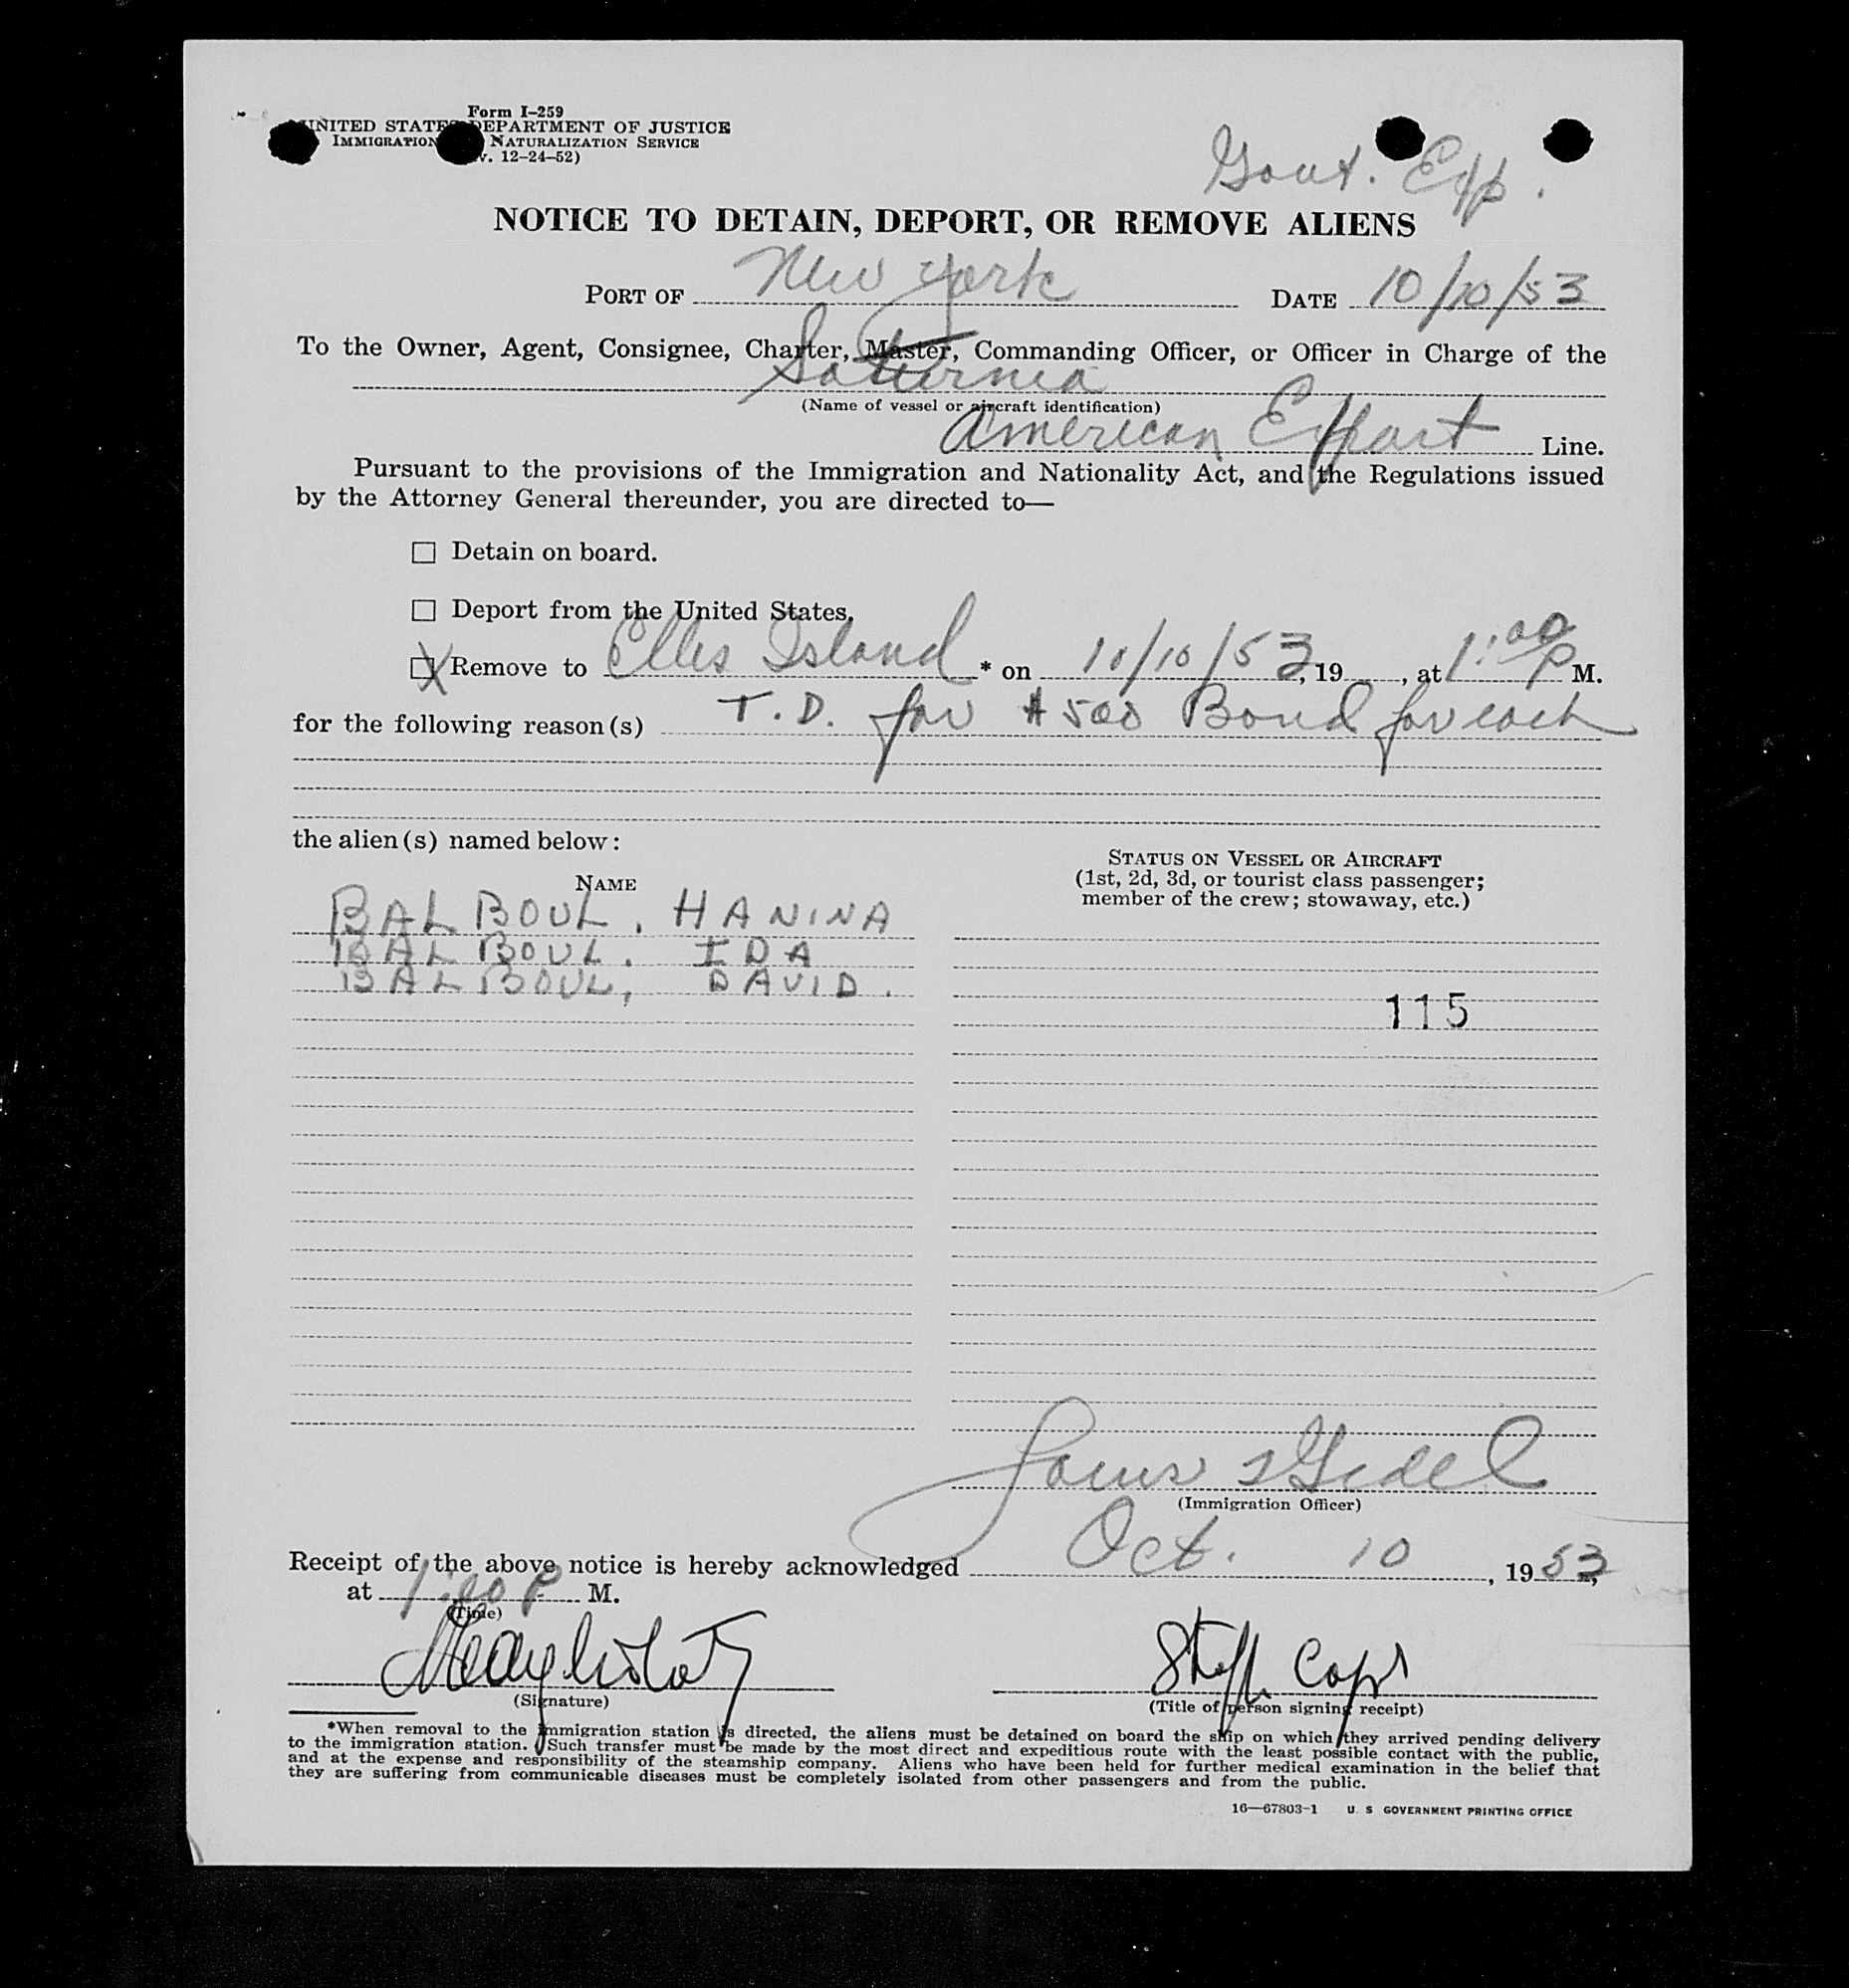 Form I-259
UNITED STATES DEPARTMENT OF JUSTICE
IMMIGRATION NATURALIZATION SERVICE
v. 12-24-52)
Govt. Exp.
NOTICE TO DETAIN, DEPORT, OR REMOVE ALIENS
PORT OF New York DATE 10/10/53
To the Owner, Agent, Consignee, Charter, Master, Commanding Officer, or Officer in Charge of the
Saturnia
(Name of vessel or aircraft identification)
American Export Line.
Pursuant to the provisions of the Immigration and Nationality Act, and the Regulations issued
by the Attorney General thereunder, you are directed to—
☐ Detain on board.
☐ Deport from the United States.
☒ Remove to Ellis Island * on 10/10/53, 19 , at 1:00 P M.
for the following reason(s) T.D. for $500 Bond for each
the alien(s) named below:
NAME
STATUS ON VESSEL OR AIRCRAFT
(1st, 2d, 3d, or tourist class passenger;
member of the crew; stowaway, etc.)
BALBOUL, HANINA
BALBOUL. IDA
BALBOUL, DAVID.
115
Louis
(Immigration Officer)
Receipt of the above notice is hereby acknowledged Oct. 10, 1953,
at 1:00 P M.
(Time)
(Signature)
(Title of person signing receipt)
*When removal to the immigration station is directed, the aliens must be detained on board the ship on which they arrived pending delivery
to the immigration station. Such transfer must be made by the most direct and expeditious route with the least possible contact with the public,
and at the expense and responsibility of the steamship company. Aliens who have been held for further medical examination in the belief that
they are suffering from communicable diseases must be completely isolated from other passengers and from the public.
16—67803-1 U. S GOVERNMENT PRINTING OFFICE